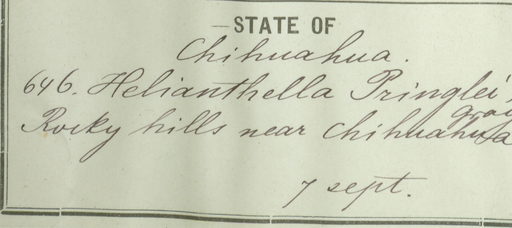 STATE OF
Chihuahua.
646. Helianthella Pringlei,
Gray
Rocky hills near Chihuahua
7 sept.